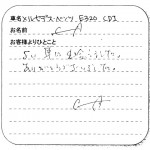 車名 メルセデス・ベンツ E320 CDI
お名前
お客様よりひとこと
よい車に出会えました。
ありがとうございました。